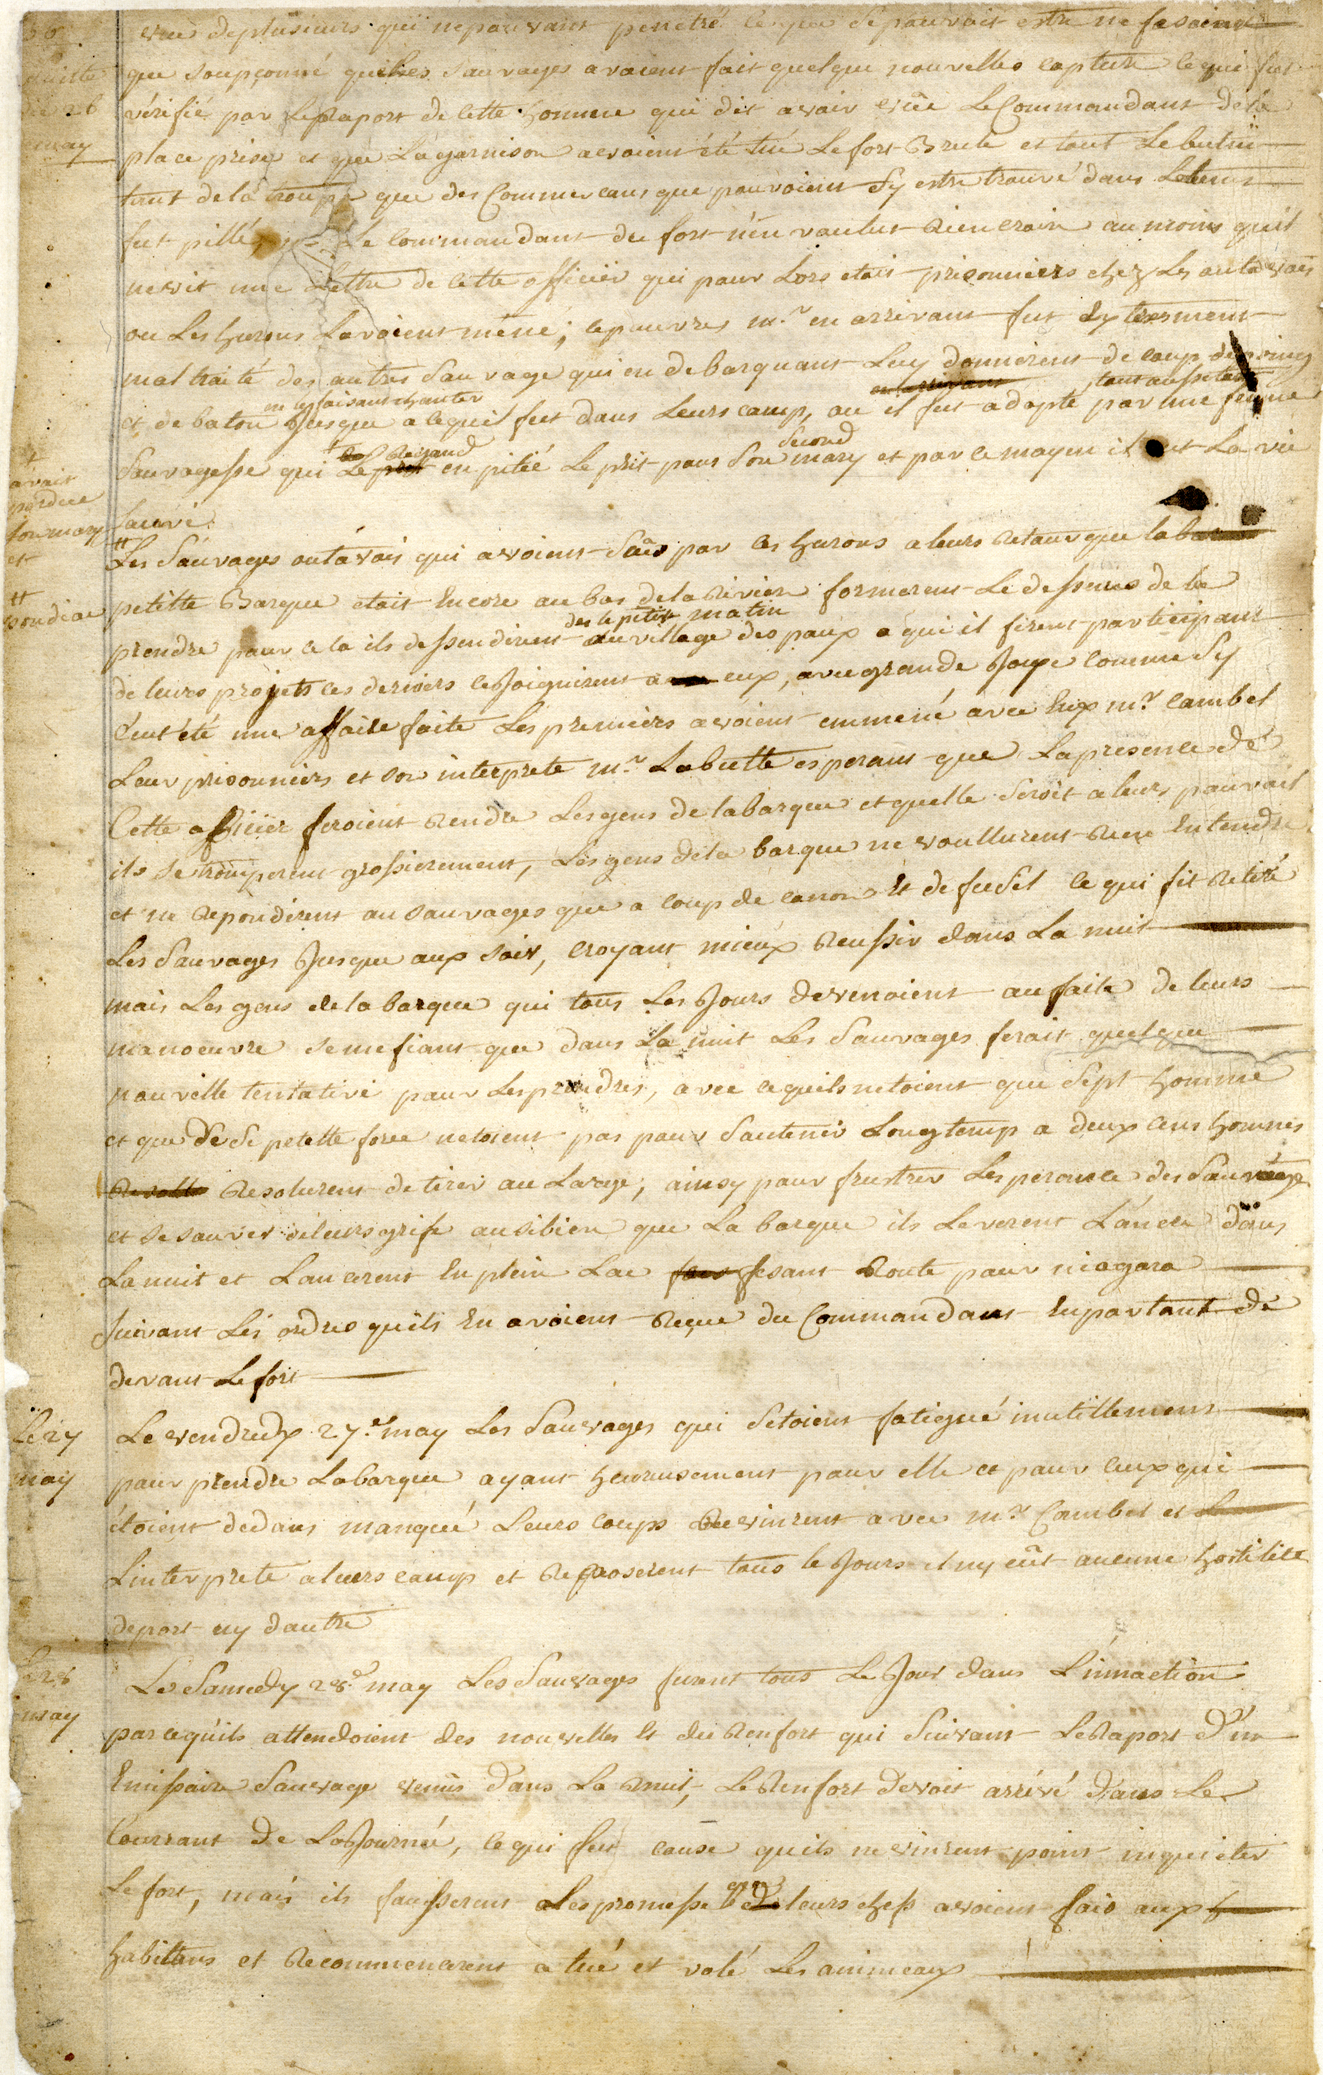 vues deplusieurs qui nepouvant penetré ce que se pouvoit estre ne fesoient
que soupçonné que les Sauvages avoient fait quelque nouvelles capture ce qui fut
vérifie par le Raport de cette homme qui dit avoir vüe Le Commandant de la
26
may
place prise et que La garnison avoient été tué Le fort Brulé et tout Le butin
tant de la troupe que des Commercans que pouvoient Sy estre trouvé dans
fut pillé, Le commandant du fort n'en voulut Rien croire au moins quil
ne vit une Lettre de cette officiér qui pour Lors etoit prisonniers chez Les outavois
ou Les hurons Lavoient mené; ce pauvres mr. en arrivant fut Extresment
mal traité des autres Sauvage qui en debarquant Luy donnérent de coup de poing
en les faisant chanter en arrivant tout aussitost
et de baton Jusque a ce quil fut dans Leurs camp, ou il fut adopté par une femme
Le Regard Second
Sauvagesse qui Le prit en pitié Le prit pour Son mary et par ce moyen il eut La vie
avait
perdue
son mary
et
sauvé.
Les Sauvages outavois qui avoient Sçûs par les hurons a leurs Retour que la
pondiac
petitte Barque etait Encore au bas de la Riviere formerent Le dessein de la
des le petit matin
prendre pour cela ils dessendirent au village des poux a qui il firent participant
de leurs projets ces derniers ce Joignirent a eux, avec grande Joye comme Sy
ceut été une affaire faite Les premiers avoient emmené avec Eux mr. Cambel
Leur prisonniers et son interprete mr. Labutte esperant que La presence de
Cette officier feroient Rendre Les gens de la barque et quelle Seroit a leurs pouvoir
ils se tromperent grossierement, Les gens de la barque ne voullurent Rien Entendre
et ne Repondirent au sauvages que a coup de canon Et de fusil ce qui fit Retiré
Les Sauvages Jusque aux soir, croyant mieux Reussir dans La nuit
mais Les gens de la barque qui tous Les Jours devenoient au faite de leurs
manoeuvre se mefiant que dans La nuit Les Sauvages ferait quelque
nouvelle tentative pour Les prendres, avec ce quils netoient que Sept homme
et que de Si petitte force netoient pas pour Soutenir Longtemp a deux cens hommes
Resolurent de tirer au Large, ainsy pour frustrer Lesperance des Sauvage
et se sauver de leurs grife ausibien que La barque ils Leverent L'ancre dans
La nuit et Lancerent En plein Lac fesant Route pour niagara
Suivant Les ordres quils En avoient Reçue du Commandant En partant de
devant Le fort
Le 27
may
Le vendredy 27e. may Les Sauvages qui Setoient fatigué inutillement
pour prendre La barque ayant heureusement pour elle et pour ceux qui
étoient dedans manqué Leurs coups Revinrent avec mr. Cambel et
Linterprete a leurs camp et Reposerent tous le Jours il ny eüt aucune hostilité
de part ny dautre
Le 28
may
Le Samedy 28e. may Les Sauvages furent tous Le Jour dans L'innaction
parcequils attendoient des nouvelles Et du Renfort qui Suivant Le Raport d'un
Emissaire Sauvage venüs dans La nuit, Le Renfort devoit arrivé dans Le
Courrant de La Journée, ce qui fut cause quils ne vinrent point inquieter
Le fort, mais ils fausserent Les promesse que leurs chefs avoient fais aux
habitans et Recommencerent a tué et volé Les annimeaux